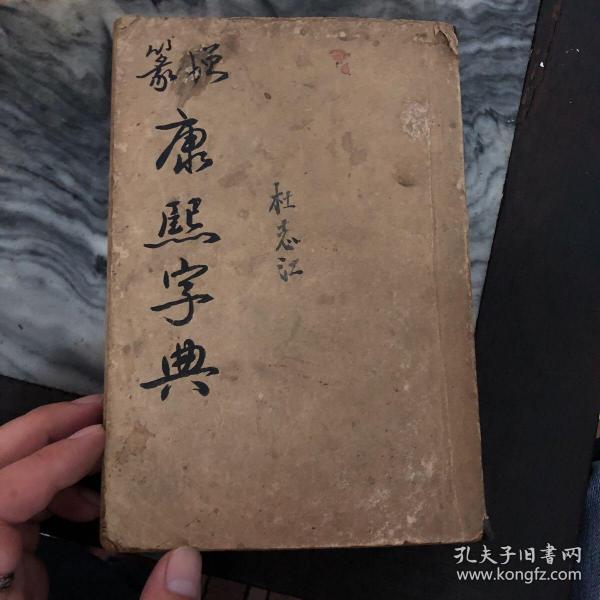 增篆
康熙字典
杜志江
孔夫子旧書网
www.kongfz.com